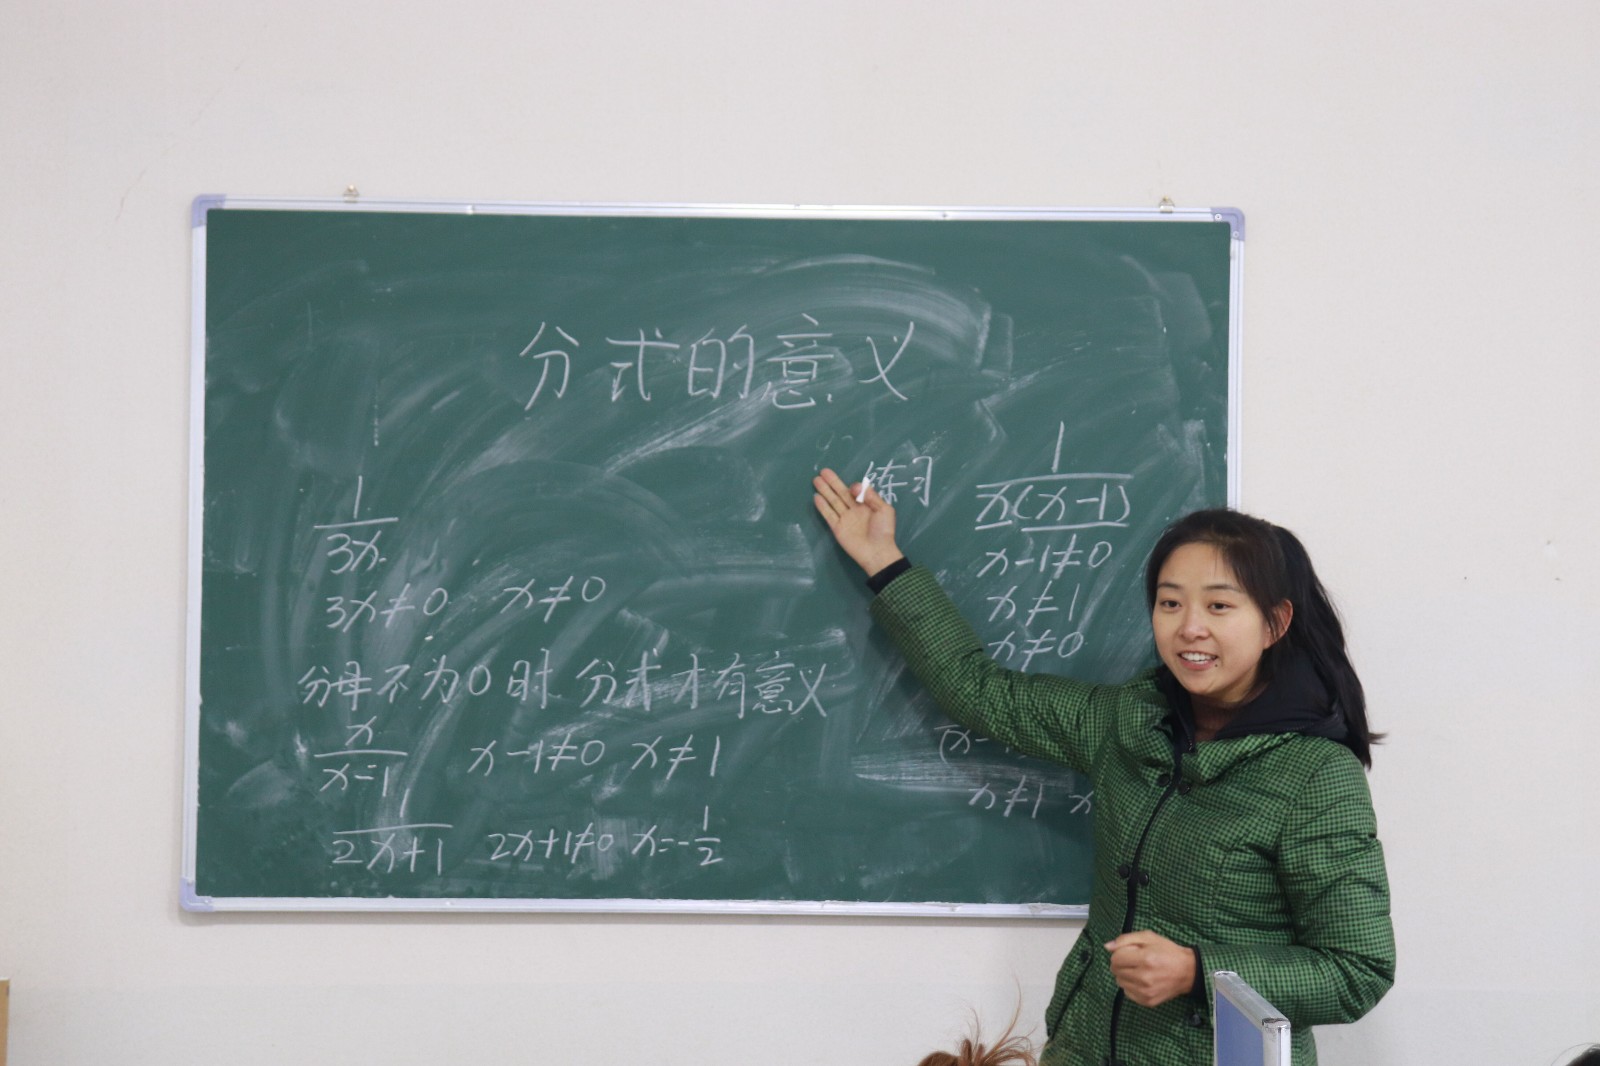 分式的意义
1/3x
3x≠0 x≠0
分母不为0时 分式才有意义
x/x-1 x-1≠0 x≠1
1/2x+1 2x+1≠0 x=-1/2
练习 1/x(x-1)
x-1≠0
x≠1
x≠0
(x-
x≠1 x